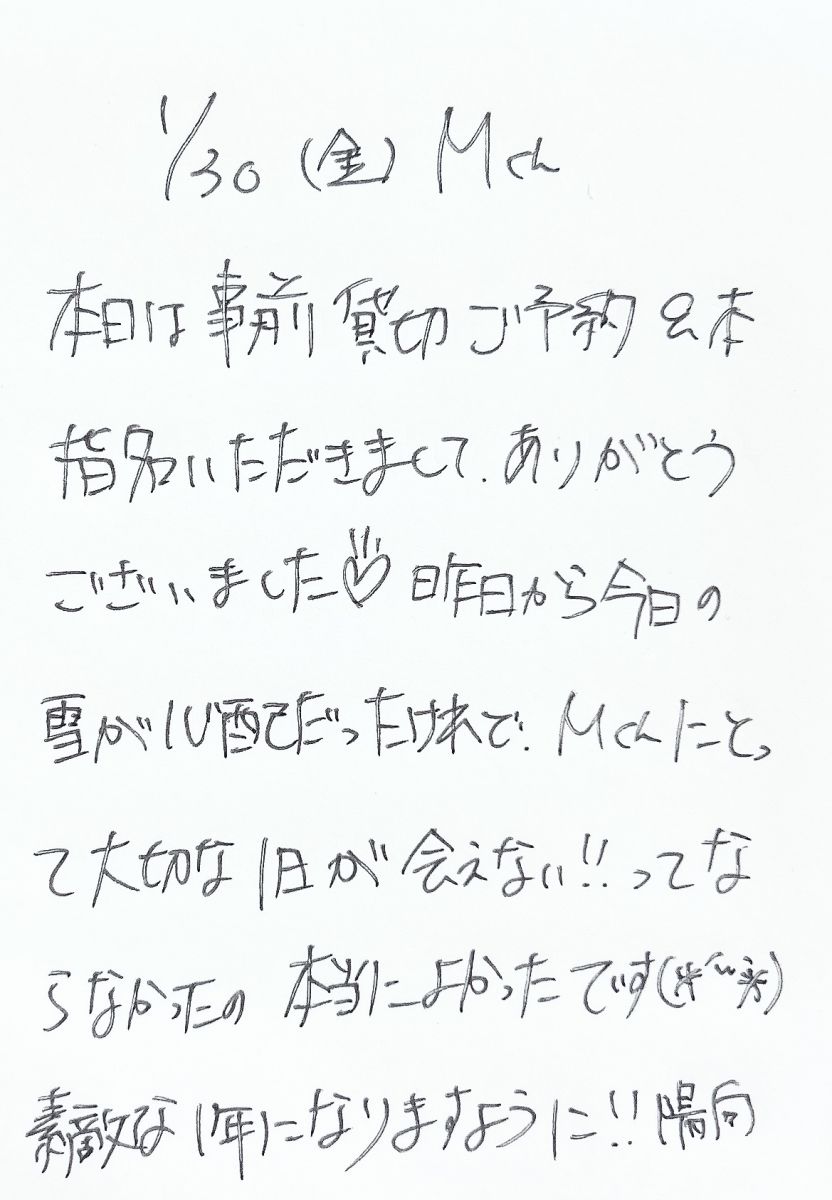 1/30 (金) Mくん
本日は事前貸切ご予約&本
指名いただきまして、ありがとう
ございました♡ 昨日から今日の
雪が心配だったけれど、Mくんにとっ
て大切な1日が会えない!!ってな
らなかったの 本当によかったです(*´˘`*)
素敵な1年になりますように!! 陽向